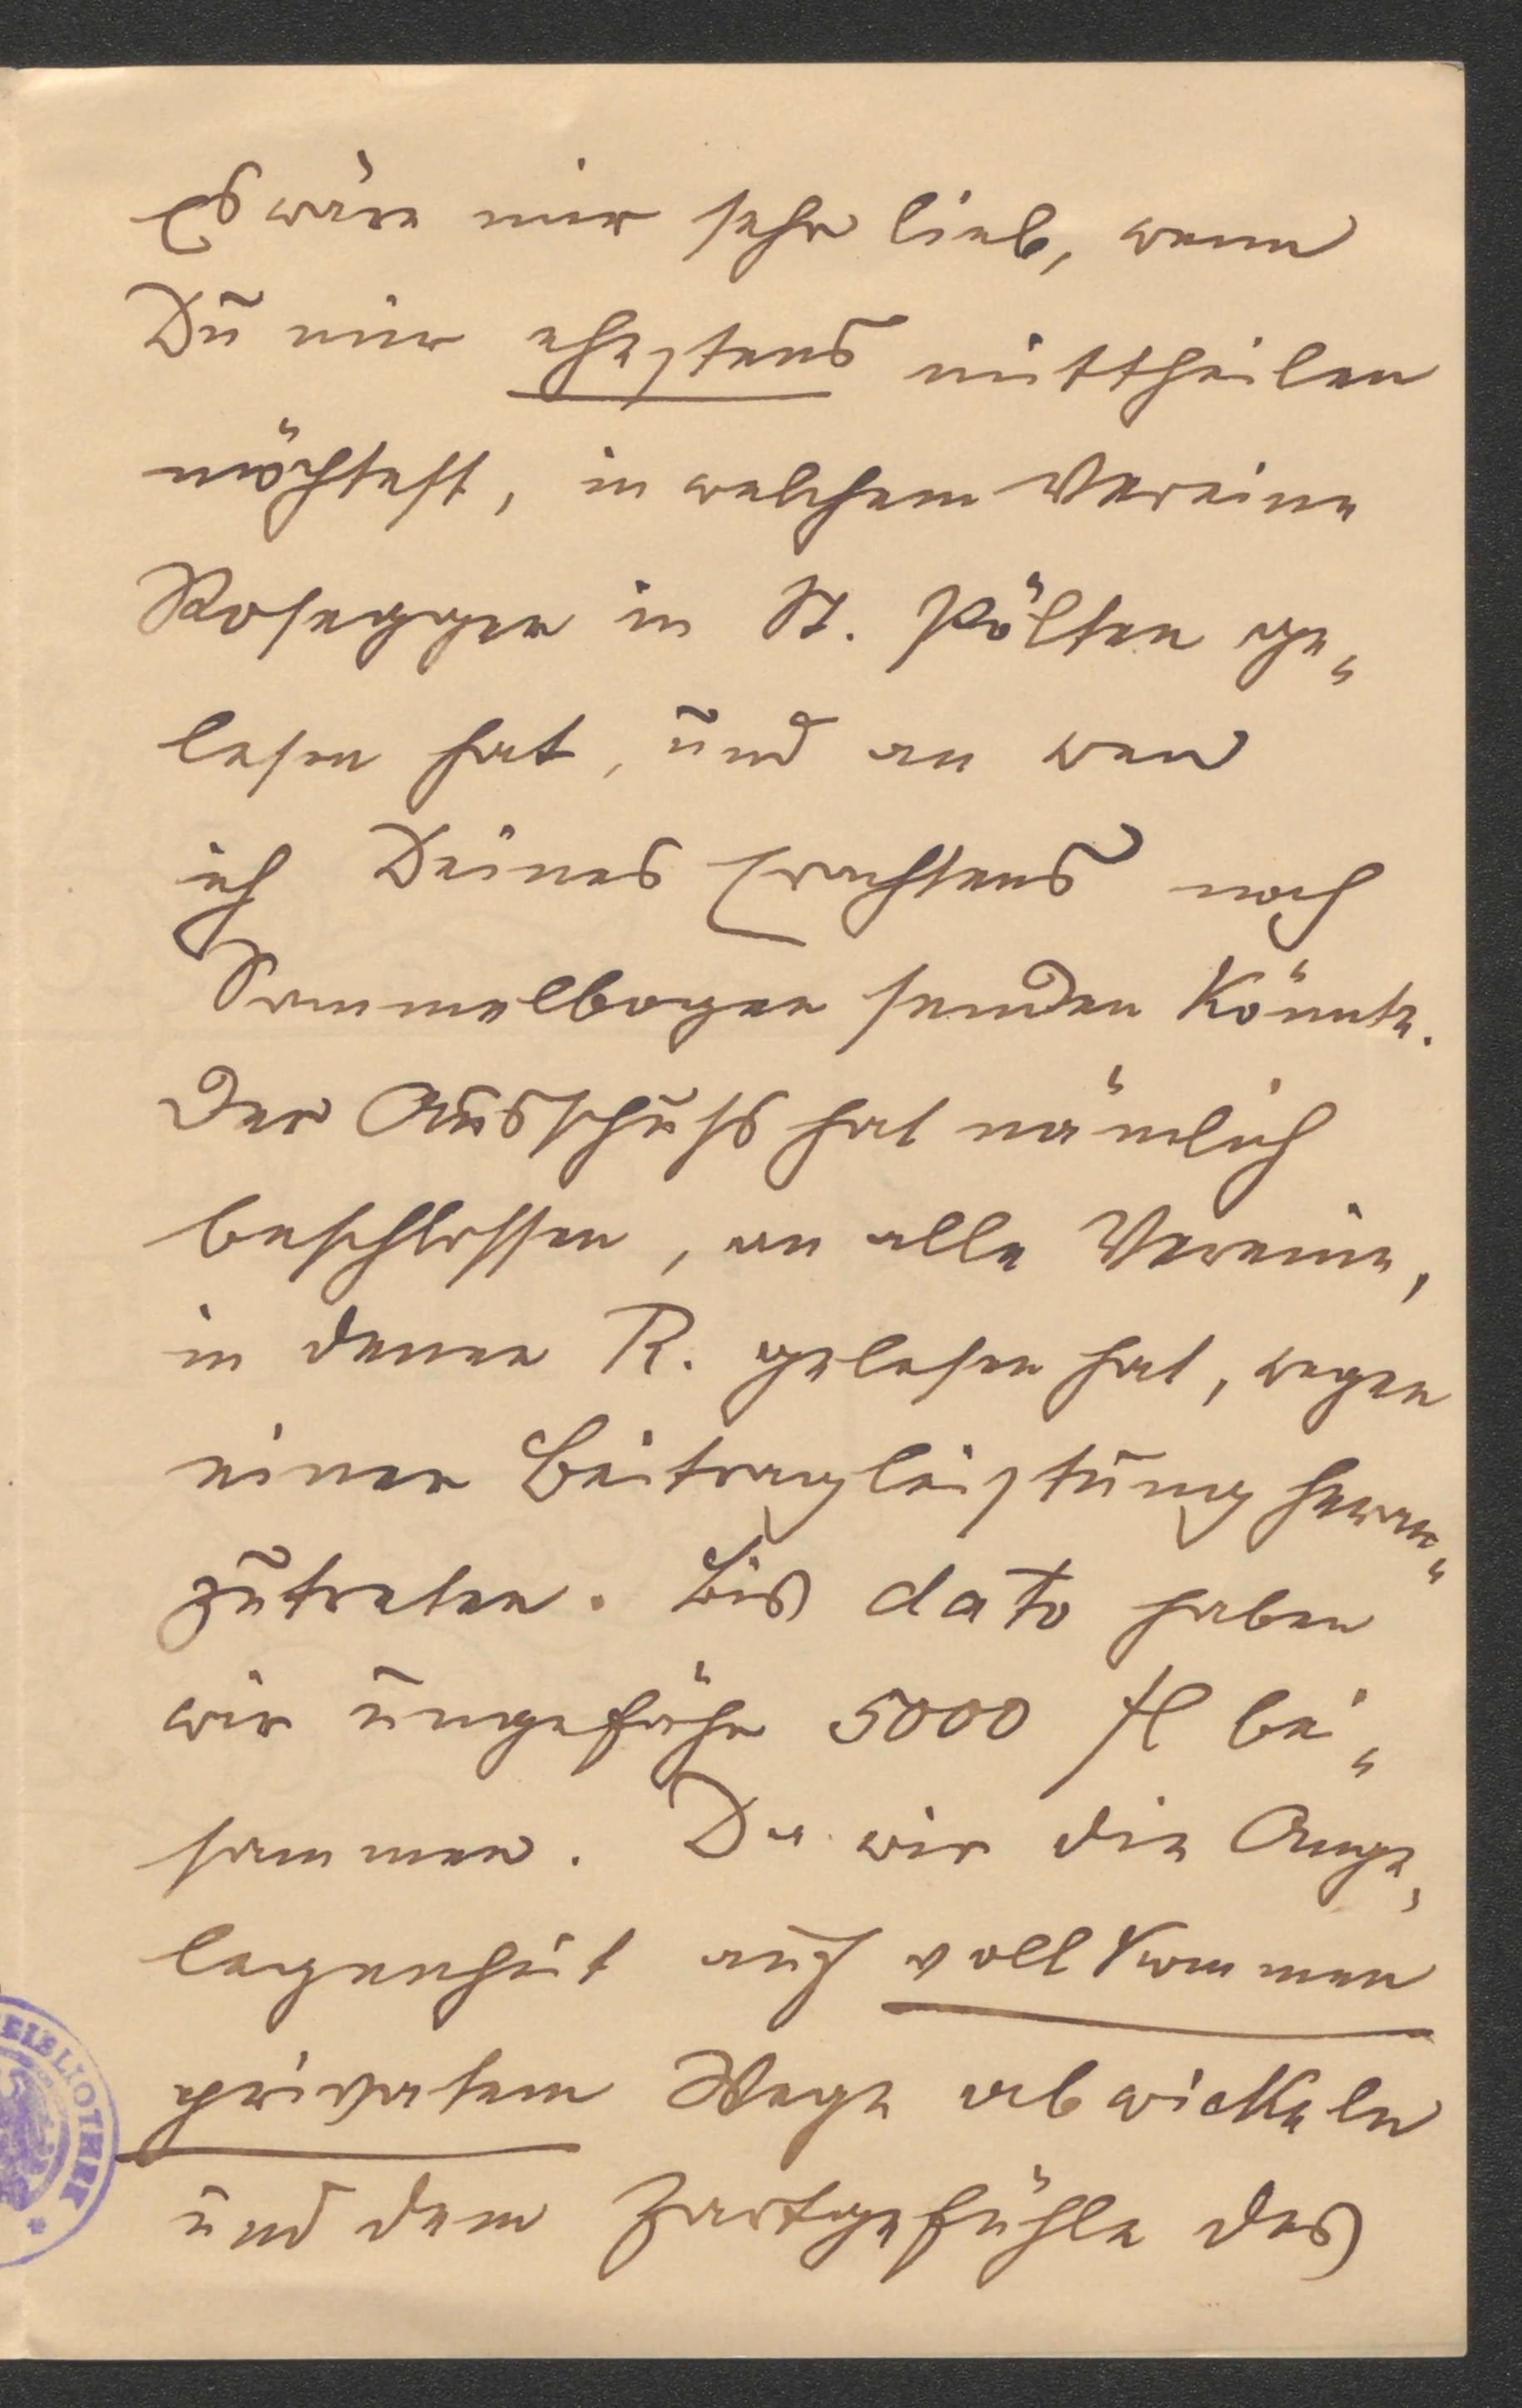 Es wäre mir sehr lieb, wenn
Du mir ehestens mittheilen
möchtest, in welchem Vereine
Rosegger in St. Pölten ge„
lesen hat, und an wen
ich Deines Erachtens noch
Sammelbogen senden könnte.
Der Ausschuss hat nämlich
beschlossen, an alle Vereine,
in denen R. gelesen hat, wegen
einer Beitragleistung heran„
zutreten. Bis dato haben
wir ungefähr 5000 fl bei„
sammen. Da wir die Ange„
legenheit auf vollkommen
privatem Wege abwickeln
und dem Zartgefühle des
EIBLIOTHEK